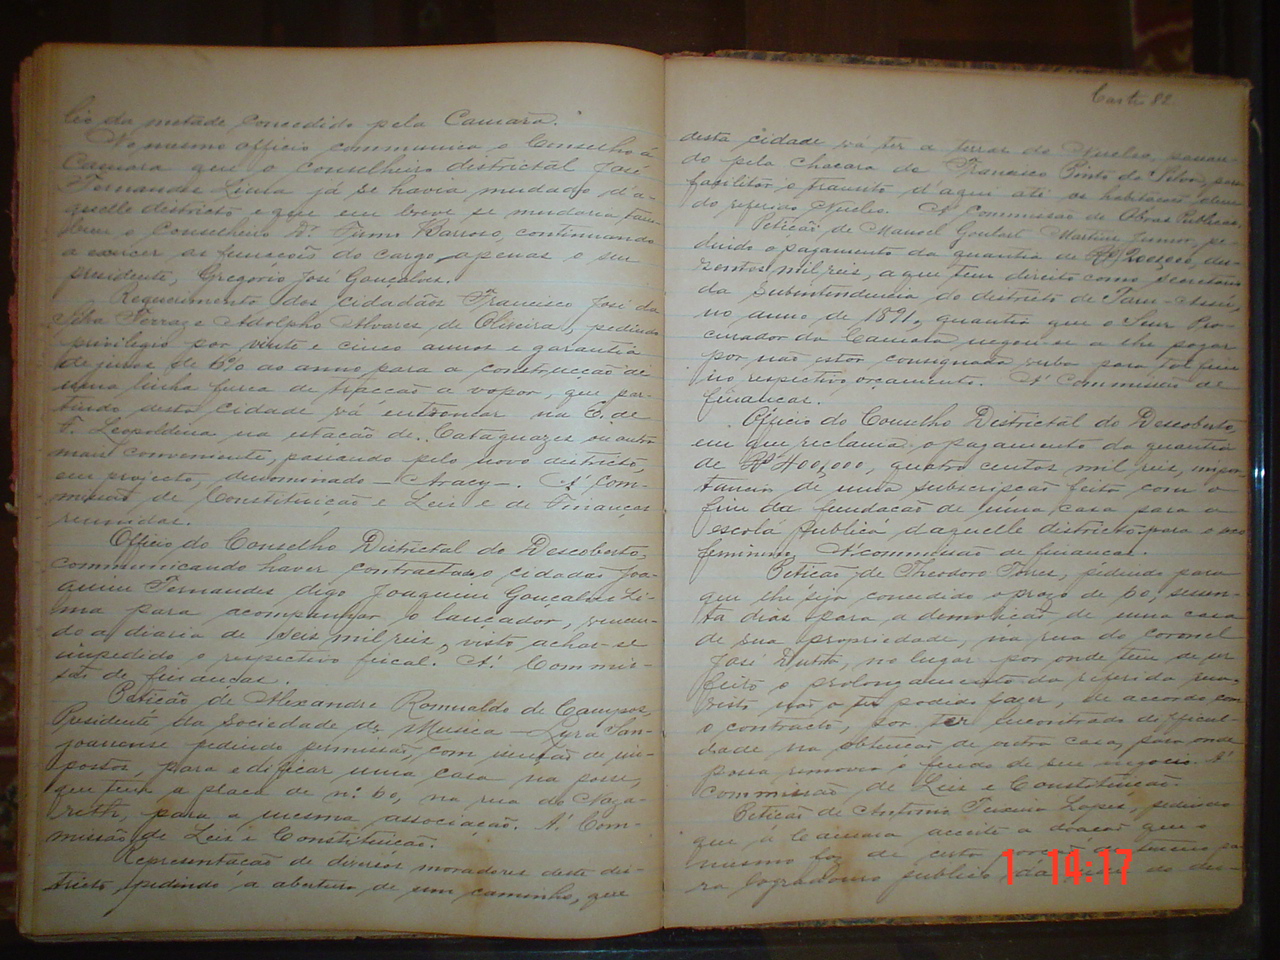 lio da metade concedido pela Camara.
No mesmo officio communica o Conselho á
Camara que o conselheiro districtal José
Fernandes Lima já se havia mudado d'a-
quelle districto e que em breve se mudaria tam-
bem o Conselheiro Dr. Firmo Barroso, continuando
a exercer as funccões do cargo, apenas o seu
presidente, Gregorio José Gonçalves.
Requerimento dos cidadãos Francisco José da
Silva Ferraz e Adolpho Alvares de Oliveira, pedindo
privilegio por vinte e cinco annos e garantia
de juros de 6% ao anno para a construcção de
uma linha ferrea de tracção a vapor, que par-
tindo desta cidade vá entroncar na E. de
F. Leopoldina na estação de Cataguazes ou outra
mais conveniente, passando pelo novo districto,
em projecto, denominado - Aracy -. A' Com-
missão de Constituição e Leis e de Finanças
reunidas.
Officio do Conselho Districtal do Descoberto,
communicando haver contractado o cidadão Joa-
quim Fernandes digo Joaquim Gonçalves Li-
ma para acompanhar o lançador, vencen-
do a diaria de seis mil reis, visto achar-se
impedido o respectivo fiscal. A' Commis-
são de finanças.
Petição de Alexandre Romualdo de Campos,
Presidente da Sociedade de Musica - Lyra San-
joanense pedindo permissão, com isenção de im-
postos, para edificar uma casa na posse,
que tem a placa de nº 60, na rua do Naza-
reth, para a mesma associação. A' Com-
missão de Leis e Constituição.
Representação de diversos moradores deste dis-
tricto pedindo a abertura de um caminho, que
82
desta cidade vá ter a terras do Nucleo, passan-
do pela chacara de Francisco Pinto da Silva, para
facilitar o transito d'aqui até as habitações alem
do referido Nucleo. A' Commissão de Obras Publicas.
Petição de Manoel Goulart Martins Junior, pe-
dindo o pagamento da quantia de 200,000, du-
zentos mil reis, a que tem direito como secretario
da Subintendencia do districto de Taru-Assú,
no anno de 1891, quantia que o Snr. Pro-
curador da Camara negou-se a lhe pagar
por não estar consignada verba para tal fim
no respectivo orçamento. A' Commissão de
finanças.
Officio do Conselho Districtal do Descoberto,
em que reclama o pagamento da quantia
de Rs 400,000, quatro centos mil reis, impor-
tancia de uma subscripção feita com o
fim da fundação de uma casa para a
escola publica daquelle districto para o sexo
feminino. A' commissão de finanças.
Petição de Theodoro Torres, pedindo para
que lhe seja concedido o prazo de 60, sessen-
ta dias para a demolição de uma casa
de sua propriedade, na rua do coronel
José Dutra, no lugar por onde tem de ser
feito o prolongamento da referida rua,
visto não o ter podido fazer, de accordo com
o contracto, por ter encontrado difficul-
dade na obtenção de outra casa, para onde
possa remover o fundo de seu negocio. A'
commissão de Leis e Constituição.
Petição de Antonio Teixeira Lopes, pedindo
que a Camara acceite a doação que o
mesmo faz de certa porção de terreno pa-
ra logradouro publico
1 14:17